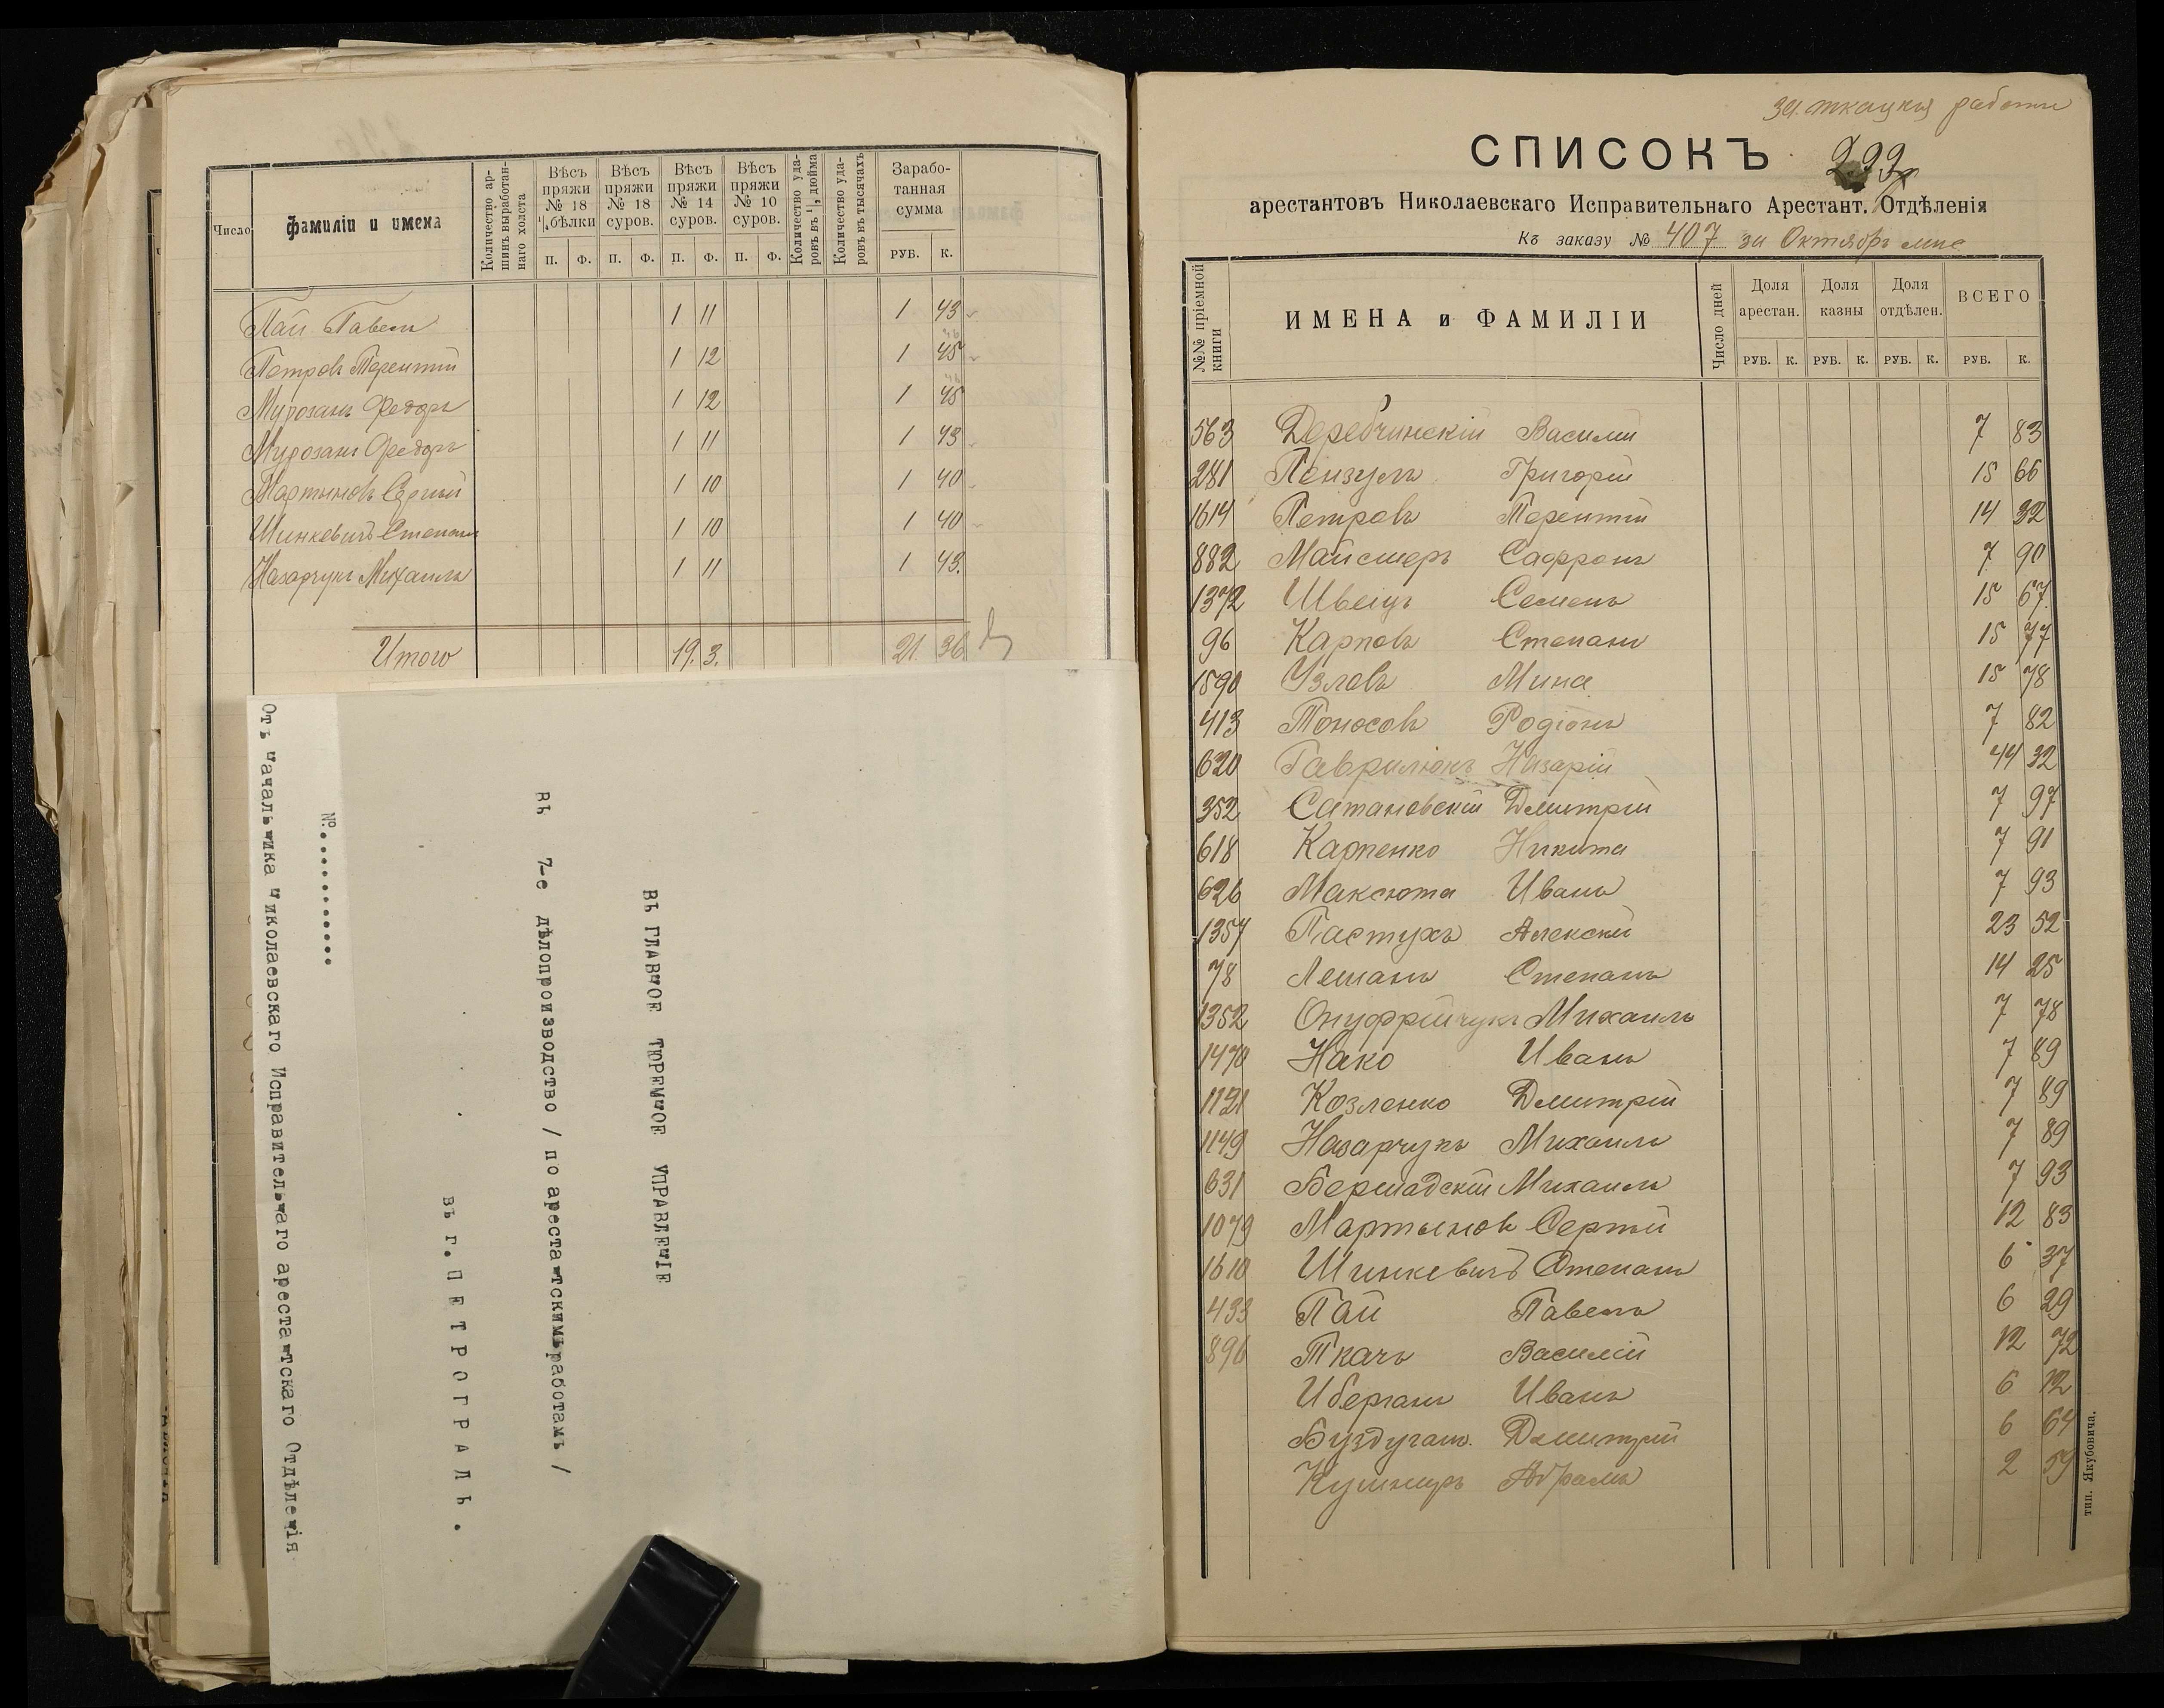 Число
фамиліи и имена
Количество ар-
шинъ выработан-
наго холста
Вѣсъ пряжи № 18 ½ бѣлки
Вѣсъ пряжи № 18 суров.
Вѣсъ пряжи № 14 суров.
Вѣсъ пряжи № 10 суров.
Количество уда-
ровъ въ ¼ дюйма
Количество уда-
ровъ въ тысячахъ
Зарабо-
танная
сумма
П. Ф. П. Ф. П. Ф. П. Ф. РУБ. К.
Пай Павелъ 1 11 1 43
Петровъ Терентій 1 12 1 45
Мурозанъ Федоръ 1 12 1 45
Мурозанъ Федоръ 1 11 1 43
Мартыновъ Сергѣй 1 10 1 40
Шинкевичъ Степанъ 1 10 1 40
Назарчукъ Михаилъ 1 11 1 43.
Итого 19. 3. 21. 36
ВЪ ГЛАВНОЕ ТЮРЕМНОЕ УПРАВЛЕНІЕ
въ 7-е дѣлопроизводство / по арестантскимъ работамъ /
въ г. ПЕТРОГРАДЪ.
№............
Отъ Начальника Николаевскаго Исправительнаго арестантскаго Отдѣленія
за ткацкія работы
СПИСОКЪ
арестантовъ Николаевскаго Исправительнаго Арестант. Отдѣленія
Къ заказу № 407 за Октябрь мѣс
№№ пріемной
книги
ИМЕНА и ФАМИЛІИ
Число дней
Доля арестан.
Доля казны
Доля отдѣлен.
ВСЕГО
РУБ. К. РУБ. К. РУБ. К. РУБ. К.
563 Деребчинскій Василій 7 83
281 Пензулъ Григорій 15 66
1614 Петровъ Терентій 14 32
882 Майстеръ Сафронъ 7 90
1372 Швецъ Семенъ 15 67
96 Карповъ Степанъ 15 77
1590 Узловъ Мина 15 78
413 Тоносовъ Родіонъ 7 82
620 Гаврилюкъ Назарій 44 32
352 Сатановскій Дмитрій 7 97
618 Карпенко Никита 7 91
626 Максюта Иванъ 7 93
1357 Пастухъ Алексѣй 23 52
78 Лешанъ Степанъ 14 25
1352 Онуфрійчукъ Михаилъ 7 78
1470 Нако Иванъ 7 89
1121 Козленко Дмитрій 7 89
1149 Назарчукъ Михаилъ 7 89
631 Бершадскій Михаилъ 7 93
1079 Мартыновъ Сергѣй 12 83
1610 Шинкевичъ Степанъ 6 37
433 Пай Павелъ 6 29
896 Ткачъ Василій 12 72
Иберганъ Иванъ 6 12
Буздуганъ Дмитрій 6 64
Кушниръ Абрамъ 2 59
тип. Якубовича.